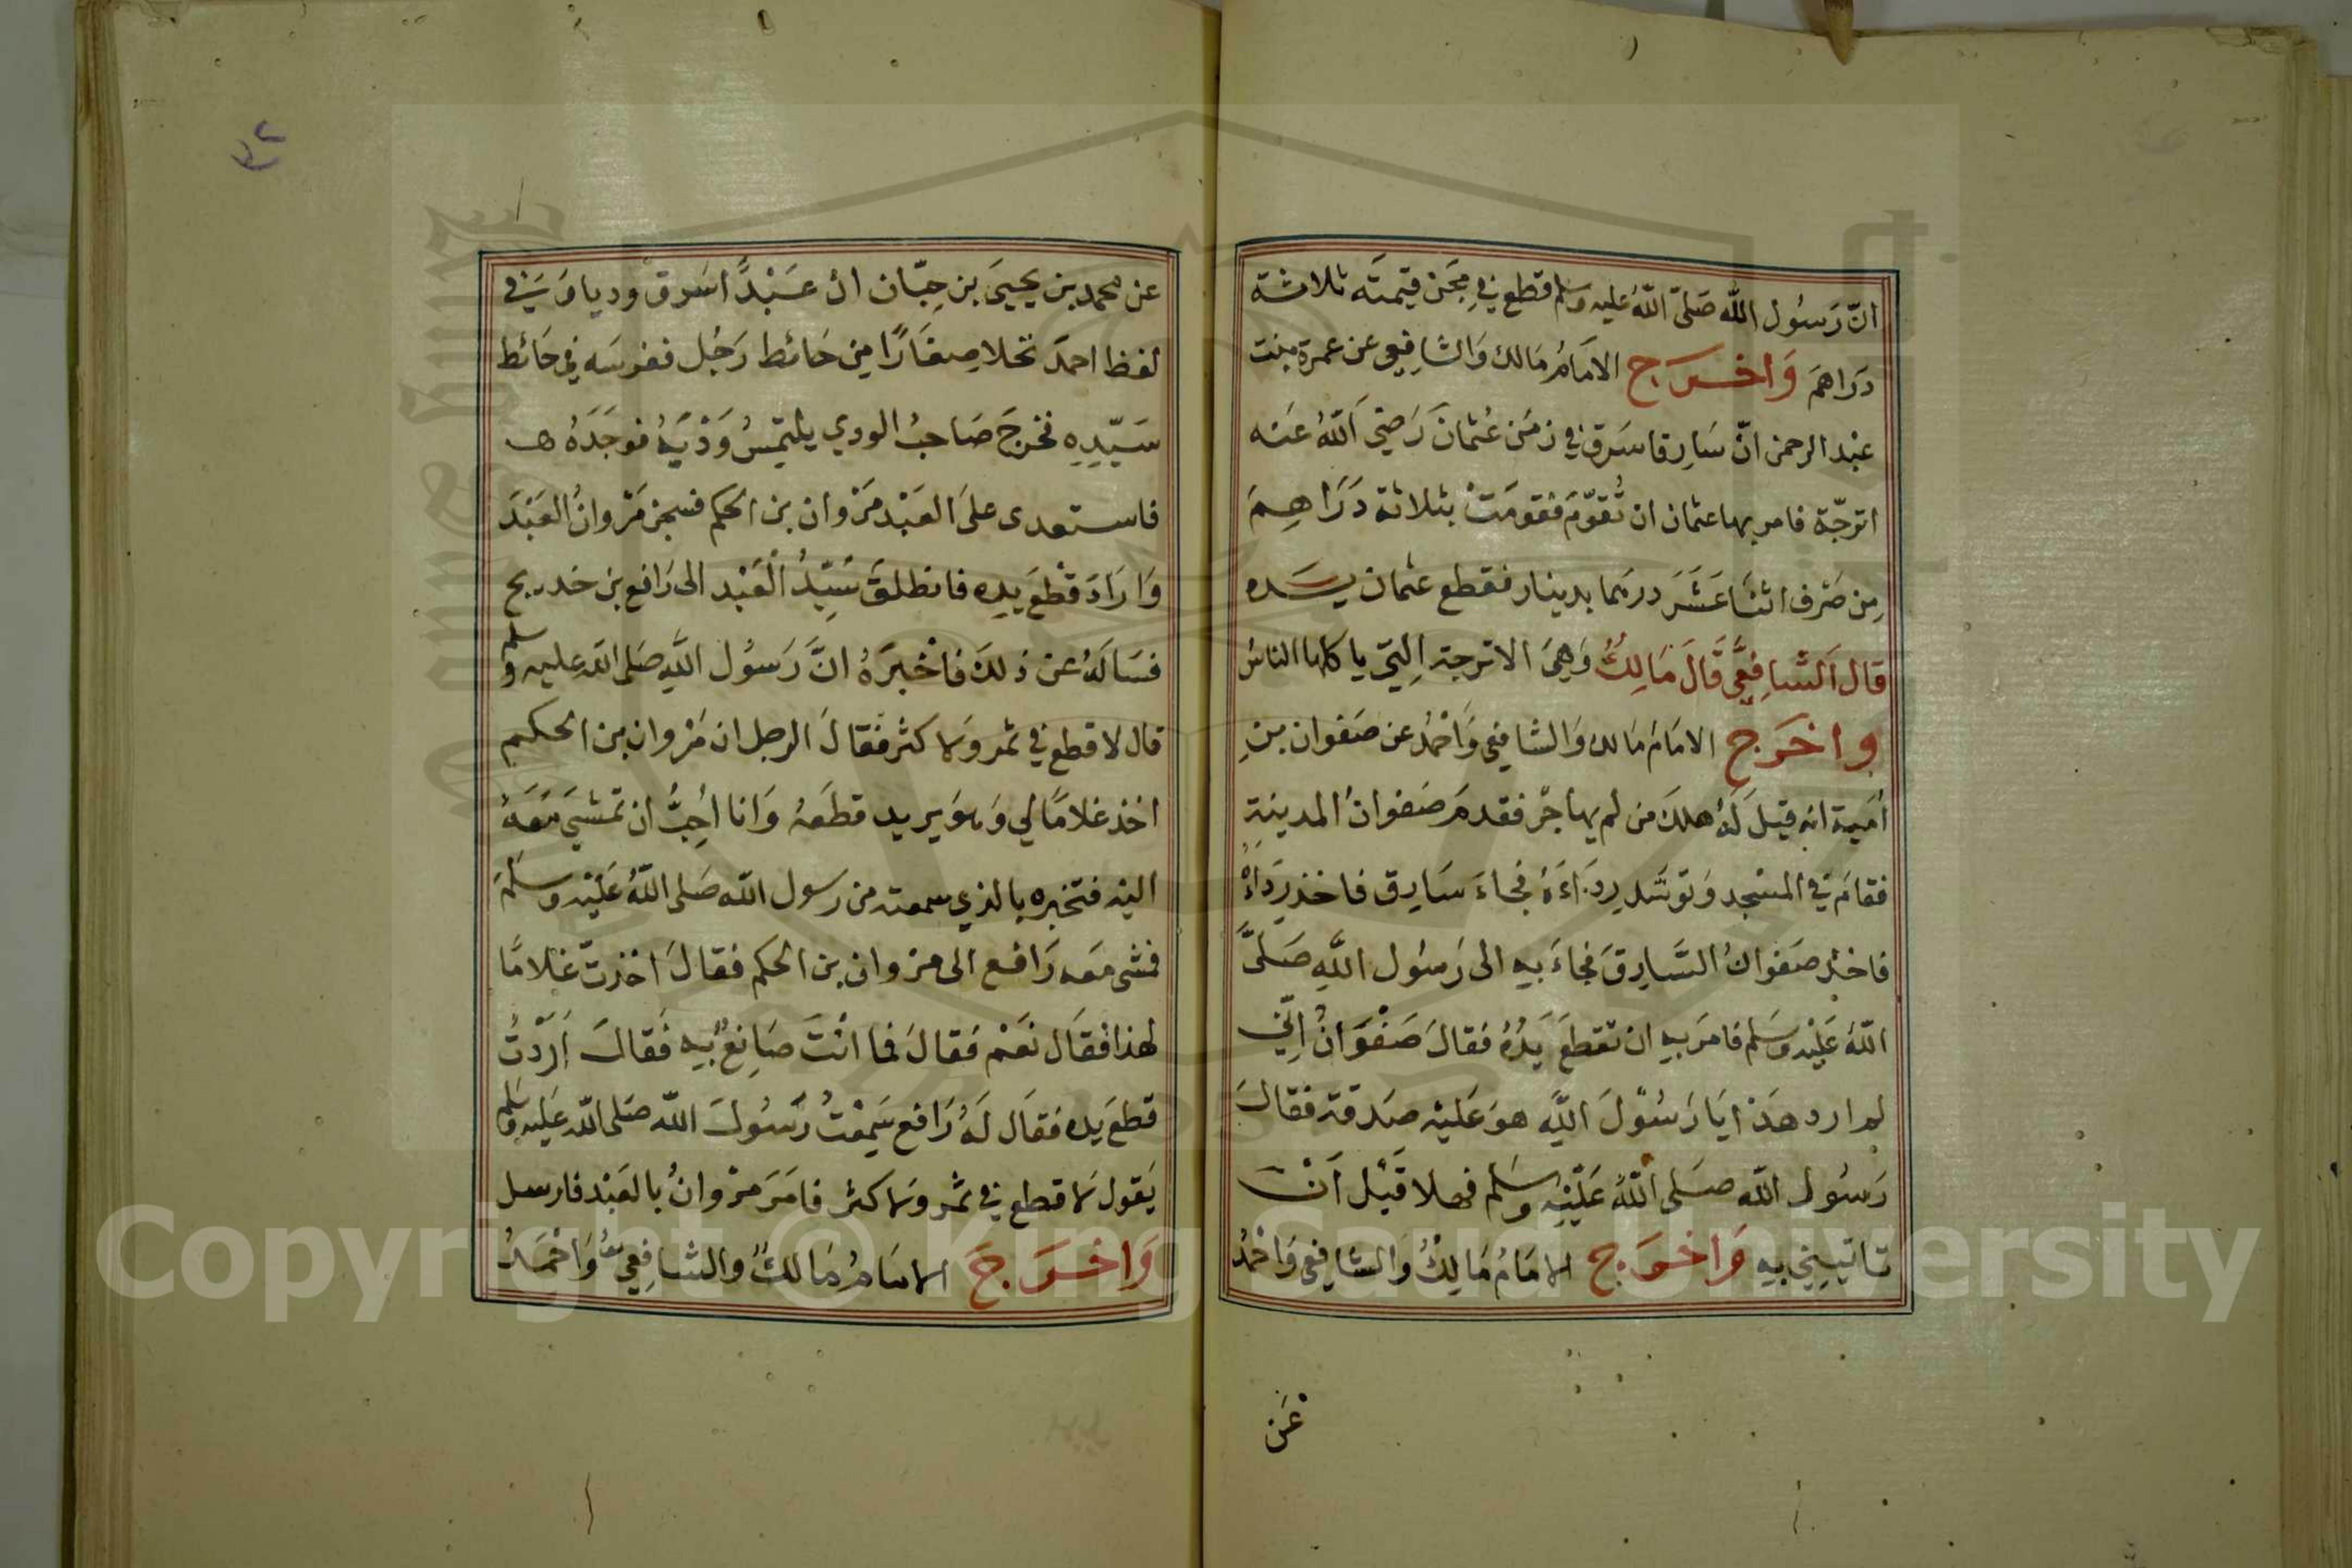 انّ رَسُول اللّه صَلّى اللّهُ عليه وسلم قطع فِي مِجَن قيمتَه ثلاثة
دَرَاهمَ وَاخرَج الامَامُ مَالك وَالشَافِعِي عن عمرة بنت
عبْد الرحمن انّ سَارِقا سَرق في زمَن عُثمانَ رَضيَ اَللّهُ عَنه
اترجّة فامر بها عثمان ان تُقوّمَ فقومَتْ بثلاثة دَرَاهِمَ
مِن صَرْف اثنَا عَشَرَ درهما بدينار فقطع عثمان يَده
قال اَلشَافِعِي قَالَ مَالِكُ وَهِيَ الاترجة الِتيّ ياكلها الناسُ
وَاخرَج الامَامُ مَالك وَالشافعِي وَاحْمدُ عن صَفوان بنِ
اُمَية انه قيلَ لَهُ هلكَ من لم يهاجرْ فقدمَ صَفوانُ المدينة
فقامَ في المسْجد وَتوسَّد رِدَاءَهُ فجاءَ سَارِق فاخذ رِدَاءَهُ
فاخذ صَفوانُ السَّارِقَ فجاءَ بهِ الى رَسُول اللَّهِ صَلىَّ
اللّهُ عَليْه وسَلم فامَرَ بهِ ان تقطعَ يَدُهُ فقالَ صَفْوَانُ اِنّي
لم ارد هَذا يَا رَسُولَ اللَّهِ هوَ عَليْه صَدقة فقالَ
رَسُول اللّه صَلى اللّهُ عَليْهِ وسَلم فهلا قبْل اَنْ
تاتيِنِي بهِ وَاخرَج الامَامُ مَالِكُ وَالشافِعي وَاحْمدُ
عَن
عن محمد بن يحيىَ بن حِبّان ان عَبْدًا سَرق وديا وَسَيَ في
لفظ احمدَ نخلا صِغَارًا مِن حَائط رَجُل فغرسَه في حَائط
سَيّدِهِ فخرجَ صَاحبُ الودي يلتمِسُ وَدْيَهُ فوجَدَهُ
فاستعدى علىَ العَبْد مَرْوان بن الحكم فسجن مَرْوانُ العَبْدَ
وَارَادَ قطْعَ يدِه فانطلقَ سَيِّدُ الْعَبْد الى رَافع بن خديج
فسَالهُ عن ذلكَ فاخْبرَهُ انَّ رَسُول اللَّهِ صَلى اللّه عليه وسلم
قال لا قطع في ثمر وَلا كثر فقالَ الرجل ان مَرْوان بن الحكم
اخذ غلامًا لي وَهوَ يريد قطعَهُ وَانا اُحِبُّ ان تمشيَ مَعَهُ
اليْه فتخبره بالذي سمعته من رسول اللّه صَلى اللّهُ عَليْه وسَلمَ
فمشى معَه رَافع الى مرْوان بن الحكم فقالَ اخذتَ غلامًا
لهذا فقَال نعَمْ فقالَ فما انْتَ صَانِعُ بهِ فَقالَ اَرَدْتُ
قطعَ يده فقَال لَهُ رَافع سَمِعْتُ رَسُولَ اللّه صَلى اللّه عَليه وسَلم
يَقول لا قطع في ثمر وَلا كثر فامَرَ مرْوانُ بالعَبْد فارسل
وَاخرَجَ الامَامُ مَالكُ والشافِعِي وَاحْمَدُ